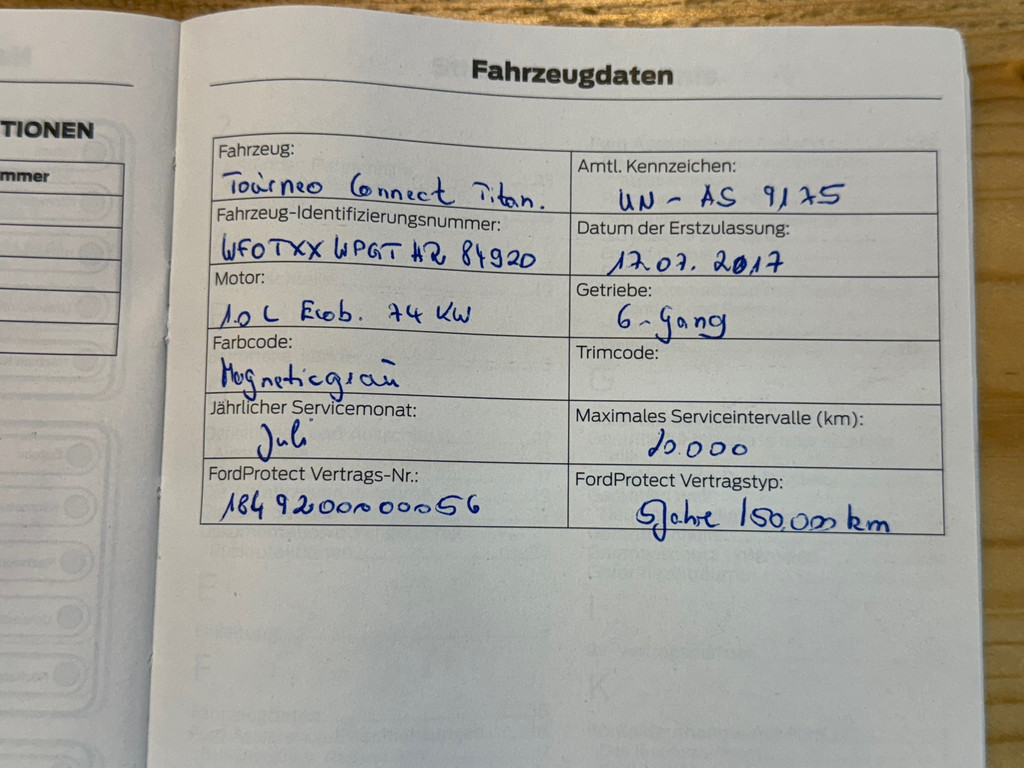 TIONEN
mmer
Fahrzeugdaten
Fahrzeug:
Tourneo Connect Titan.
Amtl. Kennzeichen:
UN - AS 9175
Fahrzeug-Identifizierungsnummer:
WF0TXX WPGT AR 84920
Datum der Erstzulassung:
17.07.2017
Motor:
1.0 L Ecob. 74 KW
Getriebe:
6-Gang
Farbcode:
Magneticgrau
Trimcode:
Jährlicher Servicemonat:
Juli
Maximales Serviceintervalle (km):
.000
FordProtect Vertrags-Nr.:
FordProtect Vertragstyp:
5 Jahre 150.000 km